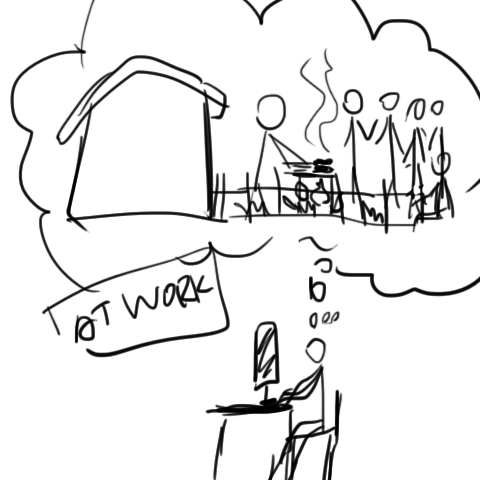 AT WORK